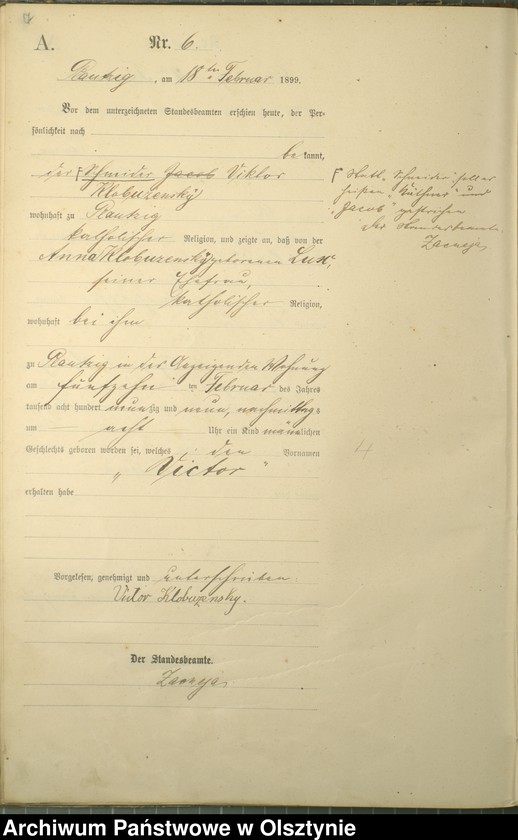 A.
Nr. 6.
Plautzig, am 18ten Februar 1899.
Vor dem unterzeichneten Standesbeamten erschien heute, der Per-
sönlichkeit nach
bekannt,
der Schneider Jacob Viktor
Klobuzensky
wohnhaft zu Plautzig
katholischer Religion, und zeigte an, daß von der
Anna Klobuzensky geborenen Lux,
seiner Ehefrau,
katholischer Religion,
wohnhaft bei ihm
zu Plautzig in der Wohnung
am fünfzehn ten Februar des Jahres
tausend acht hundert neunzig und neun, nachmittags
um acht Uhr ein Kind männlichen
Geschlechts geboren worden sei, welches den Vornamen
„Victor“
erhalten habe
Vorgelesen, genehmigt und unterschrieben.
Victor Klobuzensky.
Der Standesbeamte.
Statt „Schneider“ soll es
heißen und
„Jacob“ gestrichen
Der Standesbeamte
4
Archiwum Państwowe w Olsztynie